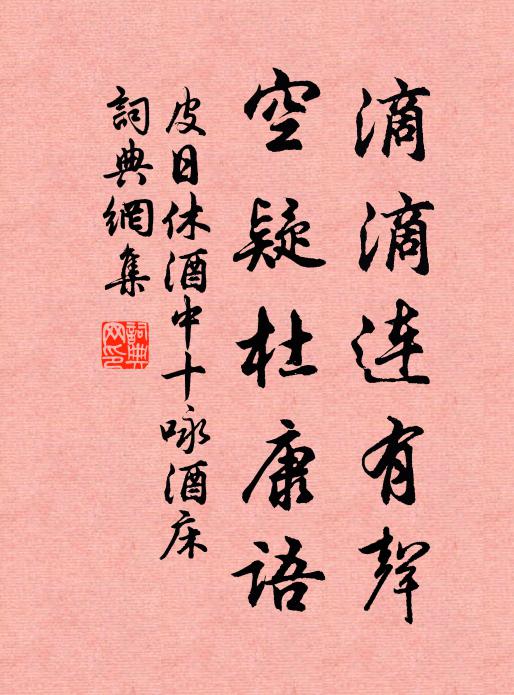 滴滴連有聲
空疑杜康語
皮日休酒中十咏酒床
詞典網集
詞典網印